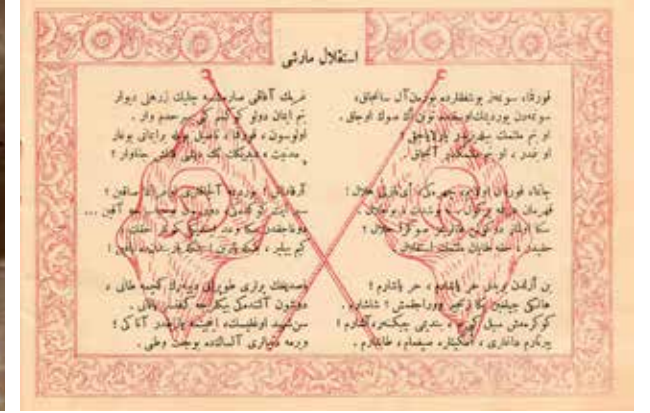 استقلال مارشی
قورقما، سونمز بو شفقلرده یوزن آل سانجاق،
سونمەدن یوردیمك اوستنده توتن اك صوك اوجاق.
او بنم ملتمك ییلدیزیدر پارلایاجق!
او بنمدر، او بنم ملتمكدر آنجاق.
چاتما، قوربان اولایم، چهرەكی ای نازلی هلال!
قهرمان عرقمه بر كول... نه بو شدت، بو جلال؟
سكا اولماز دوكولن قانلریمز صوكرا حلال؛
حقیدر، حقه طاپان ملتمك استقلال.
بن ازلدن بریدر حر یاشادم، حر یاشارم!
هانكی چیلغین بكا زنجیر ووراجقمش؟ شاشارم.
كوكرەمش سیل كبی یم، بندیمی چیكنر، آشارم؛
ییرتارم داغلری، انكینلره صیغمام، طاشارم.
غربك آفاقنی صارمشسه چلیك زرهلی دیوار
بنم ایمان دولو كوكسم كبی سرحدم وار.
اولوسون، قورقما، ناصیل بویله بر ایمانی بوغار
مدنیت، دیدیكك تك دیشی قالمش جاناوار؟
آرقداش! یوردمه آلچاقلری اوغراتما صاقین؛
سپر ایت كوكدەكی، دورسون بو حیاسزجه آقین...
دوغاجقدر سكا وعد ایتدیكی كونلر حقك
كیم بیلیر، بلكه یارین، بلكه یاریندن ده یاقین!
باصدیغك یرلری طوپراق دییەرك كچمه طانی،
دوشون آلتندەكی بیكلرجه كفنسز یاتانی.
سن شهید اوغلیسك، اینجیتمه یازیقدر آتاكی؛
ویرمه دنیالری آلسەكده بو جنت وطنی.